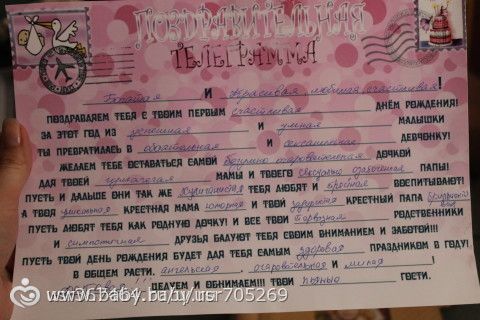 ПОЗДРАВИТЕЛЬНАЯ
ТЕЛЕГРАММА
Богатая и красивая, любимая, счастливая!
ПОЗДРАВЛЯЕМ ТЕБЯ С ТВОИМ ПЕРВЫМ счастливая ДНЁМ РОЖДЕНИЯ!
ЗА ЭТОТ ГОД ИЗ успешная И умная МАЛЫШКИ
ТЫ ПРЕВРАТИЛАСЬ В обаятельная И сексапильная ДЕВЧОНКУ!
ЖЕЛАЕМ ТЕБЕ ОСТАВАТЬСЯ САМОЙ ДОЧКОЙ
ДЛЯ ТВОЕЙ МАМЫ И ТВОЕГО сексуально озабоченная ПАПЫ!
ПУСТЬ И ДАЛЬШЕ ОНИ ТАК ЖЕ ТЕБЯ ЛЮБЯТ И ВОСПИТЫВАЮТ!
А ТВОЯ КРЕСТНАЯ МАМА И ТВОЙ КРЕСТНЫЙ ПАПА
ПУСТЬ ЛЮБЯТ ТЕБЯ КАК РОДНУЮ ДОЧКУ! И ВСЕ ТВОИ РОДСТВЕННИКИ
И симпатичная ДРУЗЬЯ БАЛУЮТ ТЕБЯ СВОИМ ВНИМАНИЕМ И ЗАБОТОЙ!!!
ПУСТЬ ТВОЙ ДЕНЬ РОЖДЕНИЯ БУДЕТ ДЛЯ ТЕБЯ САМЫМ здоровая ПРАЗДНИКОМ В ГОДУ!
В ОБЩЕМ РАСТИ, ангельская, очаровательная И милая!
ЦЕЛУЕМ И ОБНИМАЕМ!!! ТВОИ пьяные ГОСТИ.
www.baby.ru/u/usr705269